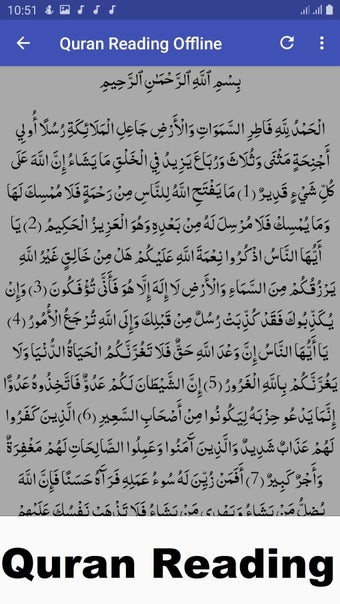 10:51
Quran Reading Offline
بِسْمِ ٱللَّهِ ٱلرَّحْمَـٰنِ ٱلرَّحِيمِ
الْحَمْدُ لِلَّهِ فَاطِرِ السَّمَوَاتِ وَالْأَرْضِ جَاعِلِ الْمَلَائِكَةِ رُسُلًا أُولِي
أَجْنِحَةٍ مَثْنَى وَثُلَاثَ وَرُبَاعَ يَزِيدُ فِي الْخَلْقِ مَا يَشَاءُ إِنَّ اللَّهَ عَلَى
كُلِّ شَيْءٍ قَدِيرٌ (1) مَا يَفْتَحِ اللَّهُ لِلنَّاسِ مِنْ رَحْمَةٍ فَلَا مُمْسِكَ لَهَا
وَمَا يُمْسِكْ فَلَا مُرْسِلَ لَهُ مِنْ بَعْدِهِ وَهُوَ الْعَزِيزُ الْحَكِيمُ (2) يَا
أَيُّهَا النَّاسُ اذْكُرُوا نِعْمَةَ اللَّهِ عَلَيْكُمْ هَلْ مِنْ خَالِقٍ غَيْرُ اللَّهِ
يَرْزُقُكُمْ مِنَ السَّمَاءِ وَالْأَرْضِ لَا إِلَهَ إِلَّا هُوَ فَأَنَّى تُؤْفَكُونَ (3) وَإِنْ
يُكَذِّبُوكَ فَقَدْ كُذِّبَتْ رُسُلٌ مِنْ قَبْلِكَ وَإِلَى اللَّهِ تُرْجَعُ الْأُمُورُ (4)
يَا أَيُّهَا النَّاسُ إِنَّ وَعْدَ اللَّهِ حَقٌّ فَلَا تَغُرَّنَّكُمُ الْحَيَاةُ الدُّنْيَا وَلَا
يَغُرَّنَّكُمْ بِاللَّهِ الْغَرُورُ (5) إِنَّ الشَّيْطَانَ لَكُمْ عَدُوٌّ فَاتَّخِذُوهُ عَدُوًّا
إِنَّمَا يَدْعُو حِزْبَهُ لِيَكُونُوا مِنْ أَصْحَابِ السَّعِيرِ (6) الَّذِينَ كَفَرُوا
لَهُمْ عَذَابٌ شَدِيدٌ وَالَّذِينَ آمَنُوا وَعَمِلُوا الصَّالِحَاتِ لَهُمْ مَغْفِرَةٌ
وَأَجْرٌ كَبِيرٌ (7) أَفَمَنْ زُيِّنَ لَهُ سُوءُ عَمَلِهِ فَرَآهُ حَسَنًا فَإِنَّ اللَّهَ
يُضِلُّ مَنْ يَشَاءُ وَيَهْدِي مَنْ يَشَاءُ فَلَا تَذْهَبْ نَفْسُكَ عَلَيْهِمْ
Quran Reading